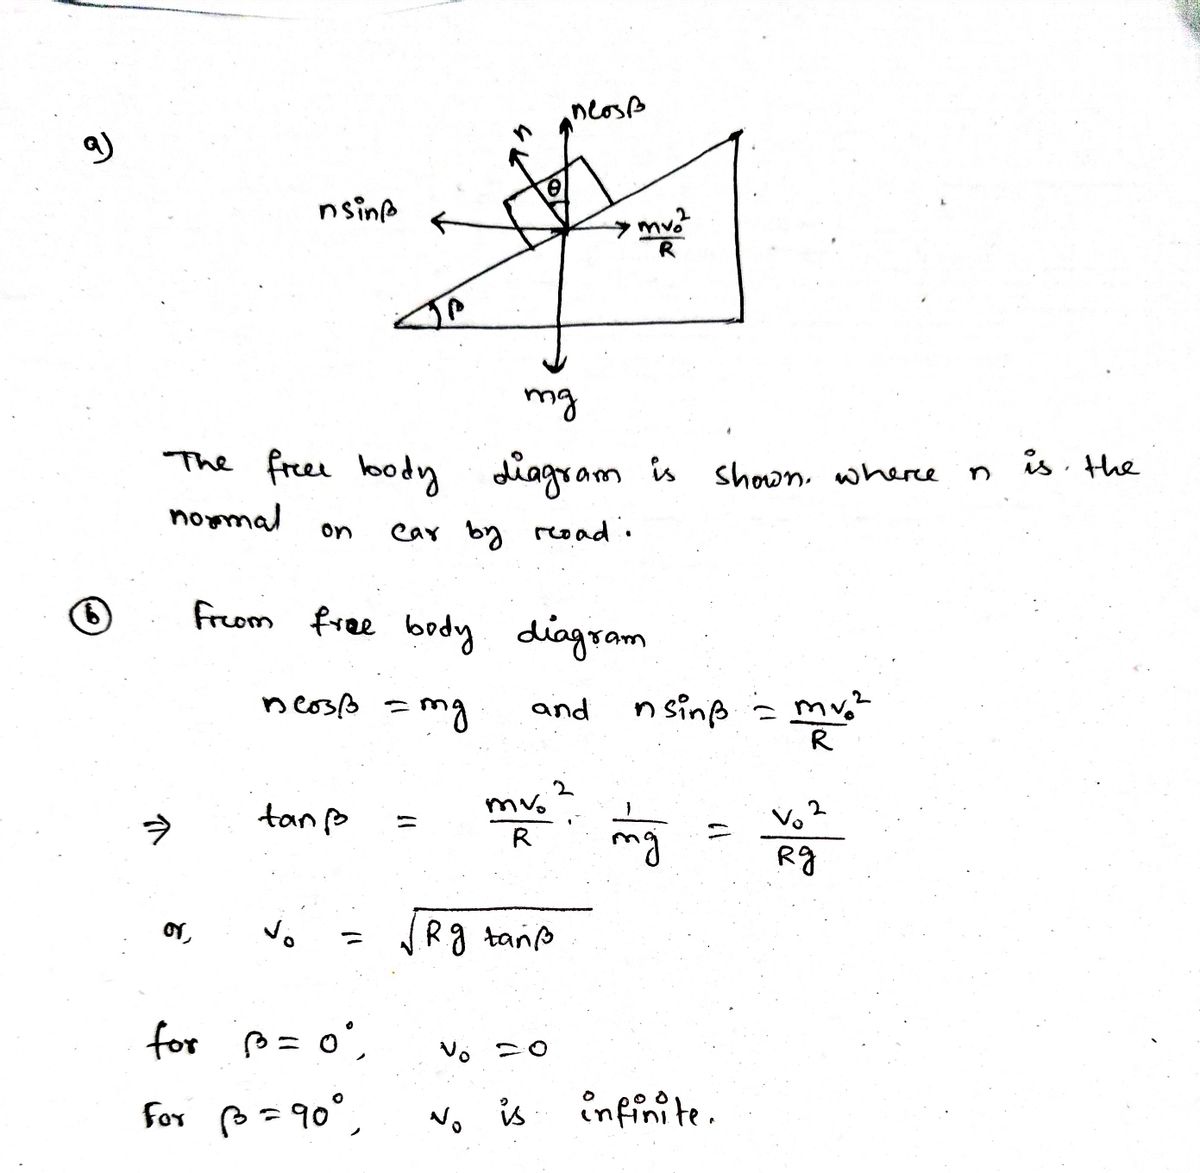 a)
ncosβ
n
θ
nsinβ
mv₀²/R
β
mg
The free body diagram is shown. where n is the
normal on car by road.
(b) From free body diagram
ncosβ = mg and nsinβ = mv₀²/R
⇒ tanβ = mv₀²/R · 1/mg = v₀²/Rg
or, v₀ = √(Rg tanβ)
for β = 0°, v₀ = 0
For β = 90°, v₀ is infinite.